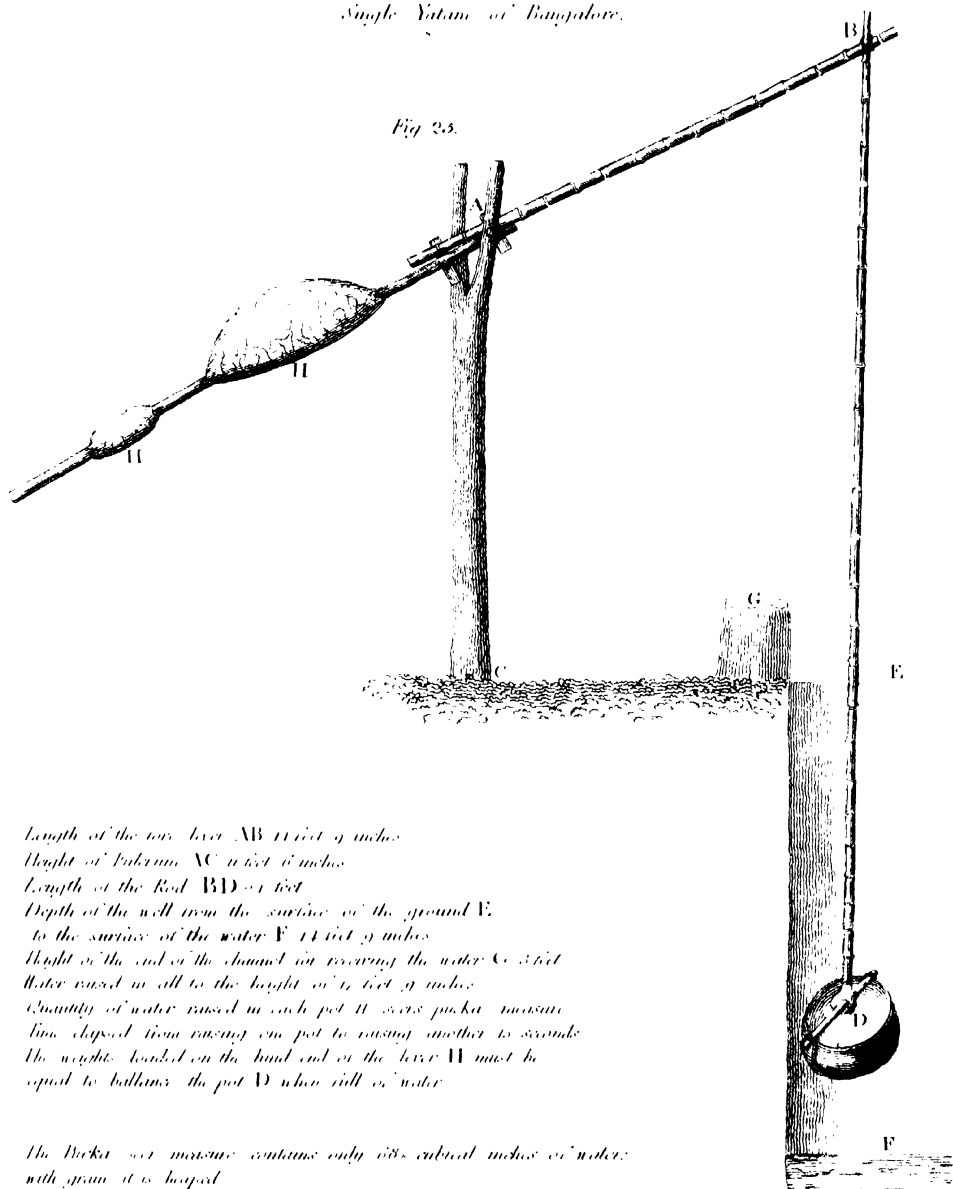 Single Yatam of Bangalore.
Fig 25.
B
A
H
H
G
C
E
D
F
Length of the fore lever AB 14 feet 9 inches
Height of Fulcrum AC 11 feet 6 inches
Length of the Rod BD feet
Depth of the well from the surface of the ground E
to the surface of the water F 14 feet 9 inches
Height of the end of the channel for receiving the water G 3 feet
Water raised in all to the height of 17 feet 9 inches
Quantity of water raised in each pot 11 seers pucka measure
Time elapsed from raising one pot to raising another 15 seconds
The weights loaded on the hind end of the lever H must be
equal to ballance the pot D when full of water
The seer measure contains only cubical inches of water:
with grain it is heaped